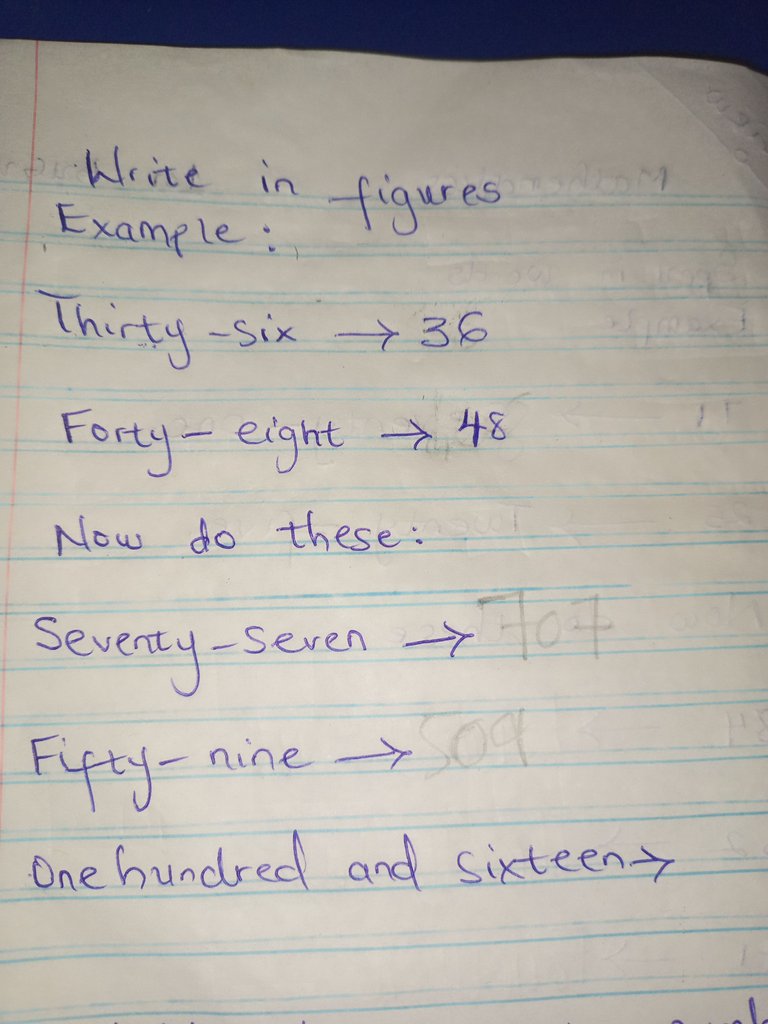 Write in figures
Example:
Thirty-six → 36
Forty-eight → 48
Now do these:
Seventy-seven → 707
Fifty-nine → 509
One hundred and sixteen →